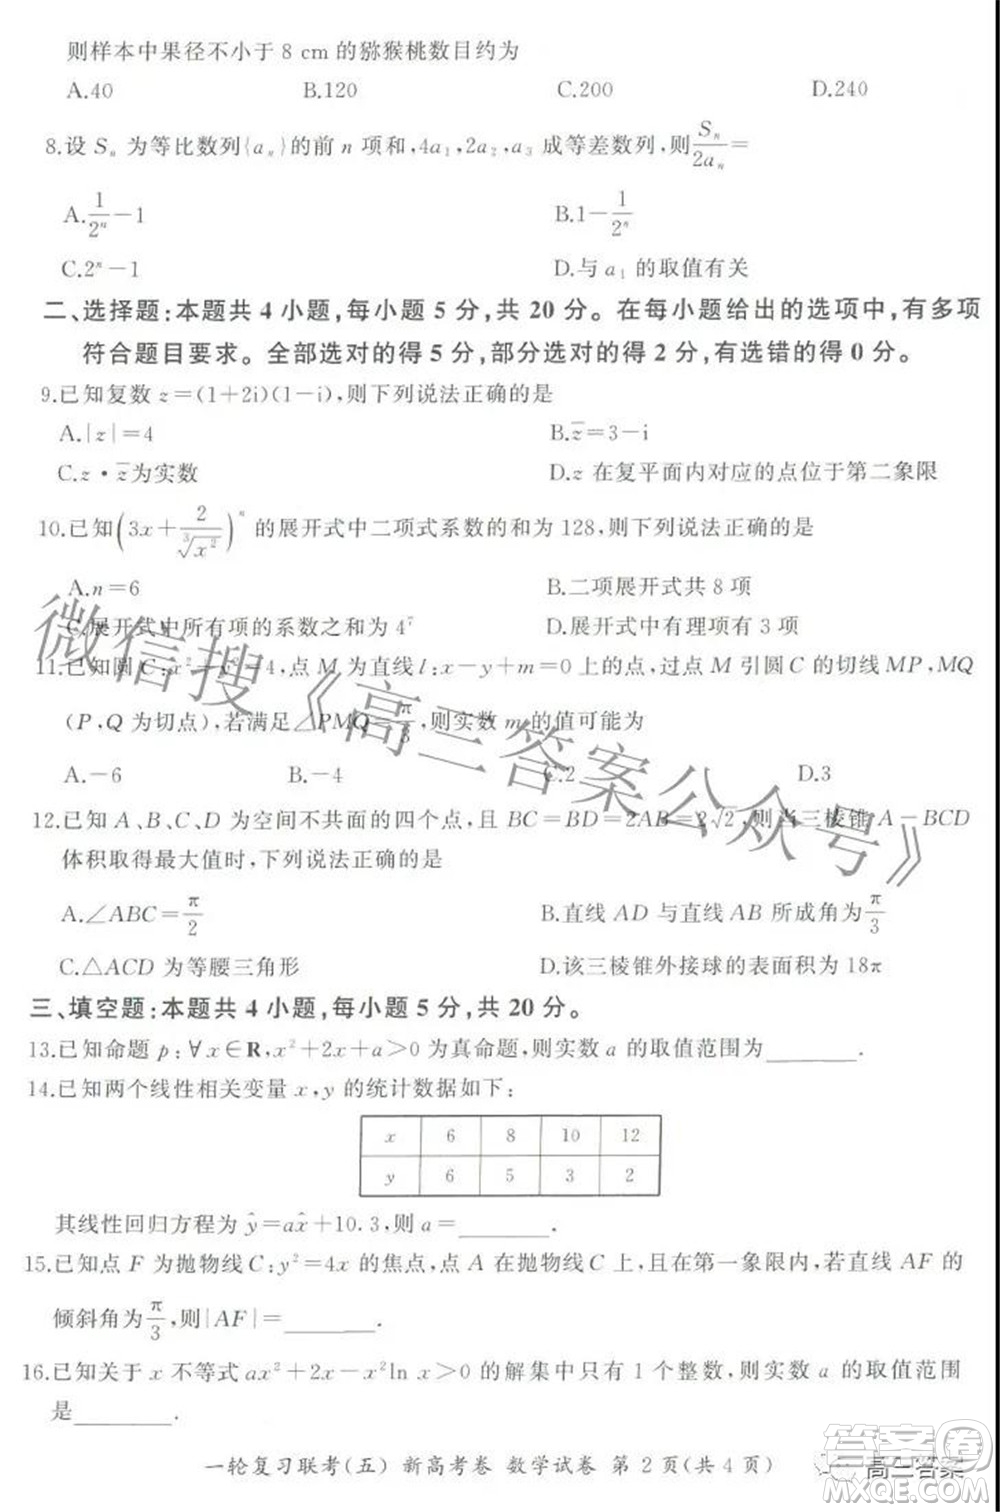 则样本中果径不小于 8 cm 的猕猴桃数目约为
A.40 B.120 C.200 D.240
8.设 Sₙ 为等比数列{aₙ}的前 n 项和,4a₁,2a₂,a₃ 成等差数列,则 Sₙ/2aₙ =
A. 1/2ⁿ −1 B.1− 1/2ⁿ
C.2ⁿ−1 D.与 a₁ 的取值有关
二、选择题:本题共 4 小题,每小题 5 分,共 20 分。在每小题给出的选项中,有多项
符合题目要求。全部选对的得 5 分,部分选对的得 2 分,有选错的得 0 分。
9.已知复数 z=(1+2i)(1−i),则下列说法正确的是
A.|z|=4 B.z̄=3−i
C.z·z̄为实数 D.z 在复平面内对应的点位于第二象限
10.已知(3x+2/∛x²)ⁿ 的展开式中二项式系数的和为 128,则下列说法正确的是
A.n=6 B.二项展开式共 8 项
C.展开式中所有项的系数之和为 4⁷ D.展开式中有理项有 3 项
11.已知圆 C:x² y²=4,点 M 为直线 l:x−y+m=0 上的点,过点 M 引圆 C 的切线 MP,MQ
(P,Q 为切点),若满足∠PMQ=π/3,则实数 m 的值可能为
A.−6 B.−4 C.2 D.3
12.已知 A、B、C、D 为空间不共面的四个点,且 BC=BD=2AB=2√2,则当三棱锥 A−BCD
体积取得最大值时,下列说法正确的是
A.∠ABC=π/2 B.直线 AD 与直线 AB 所成角为π/3
C.△ACD 为等腰三角形 D.该三棱锥外接球的表面积为 18π
三、填空题:本题共 4 小题,每小题 5 分,共 20 分。
13.已知命题 p:∀x∈R,x²+2x+a>0 为真命题,则实数 a 的取值范围为________.
14.已知两个线性相关变量 x,y 的统计数据如下:
x 6 8 10 12
y 6 5 3 2
其线性回归方程为 ŷ=ax̂+10.3,则 a=________.
15.已知点 F 为抛物线 C:y²=4x 的焦点,点 A 在抛物线 C 上,且在第一象限内,若直线 AF 的
倾斜角为π/3,则|AF|=________.
16.已知关于 x 不等式 ax²+2x−x²ln x>0 的解集中只有 1 个整数,则实数 a 的取值范围
是________.
一轮复习联考(五) 新高考卷 数学试卷 第 2 页(共 4 页)
微信搜《高三答案公众号》
答案卷
高三答案